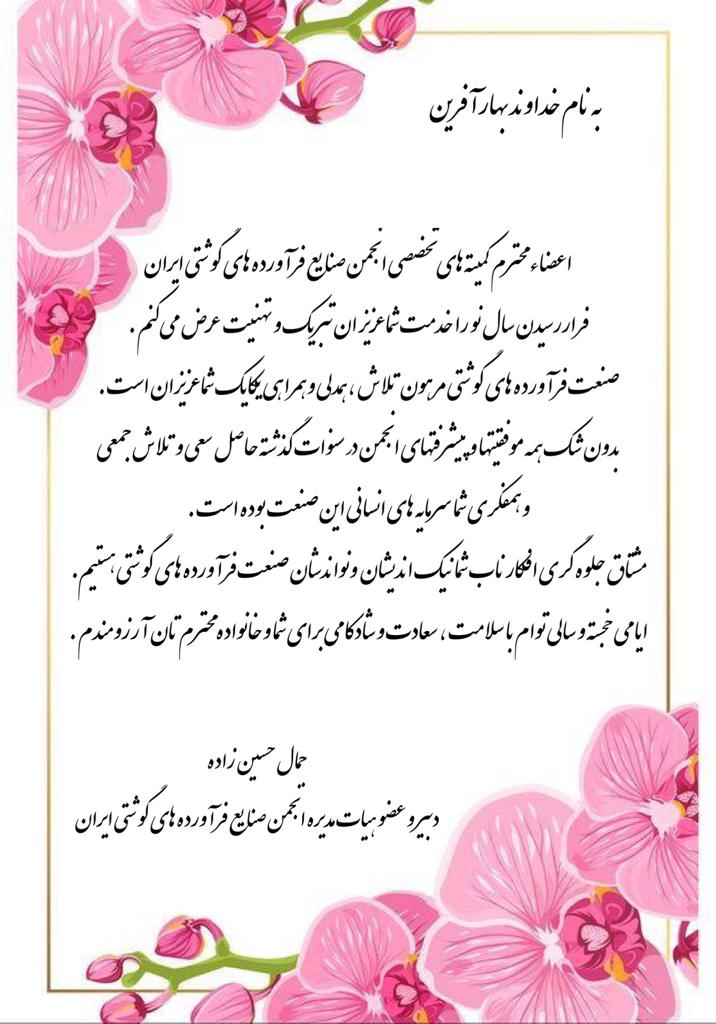 به نام خداوند بهار آفرین
اعضاء محترم کمیته های تخصصی انجمن صنایع فرآورده های گوشتی ایران
فرارسیدن سال نو را خدمت شما عزیزان تبریک و تهنیت عرض می کنم .
صنعت فرآورده های گوشتی مرهون تلاش ، همدلی و همراهی یکایک شما عزیزان است .
بدون شک همه موفقیتها و پیشرفتهای انجمن در سنوات گذشته حاصل سعی و تلاش جمعی
و همفکری شما سرمایه های انسانی این صنعت بوده است .
مشتاق جلوه گری افکار ناب شما نیک اندیشان و نواندشان صنعت فرآورده های گوشتی هستیم .
ایامی خجسته و سالی توام با سلامت ، سعادت و شادکامی برای شما و خانواده محترم تان آرزومندم .
جمال حسین زاده
دبیر و عضو هیات مدیره انجمن صنایع فرآورده های گوشتی ایران